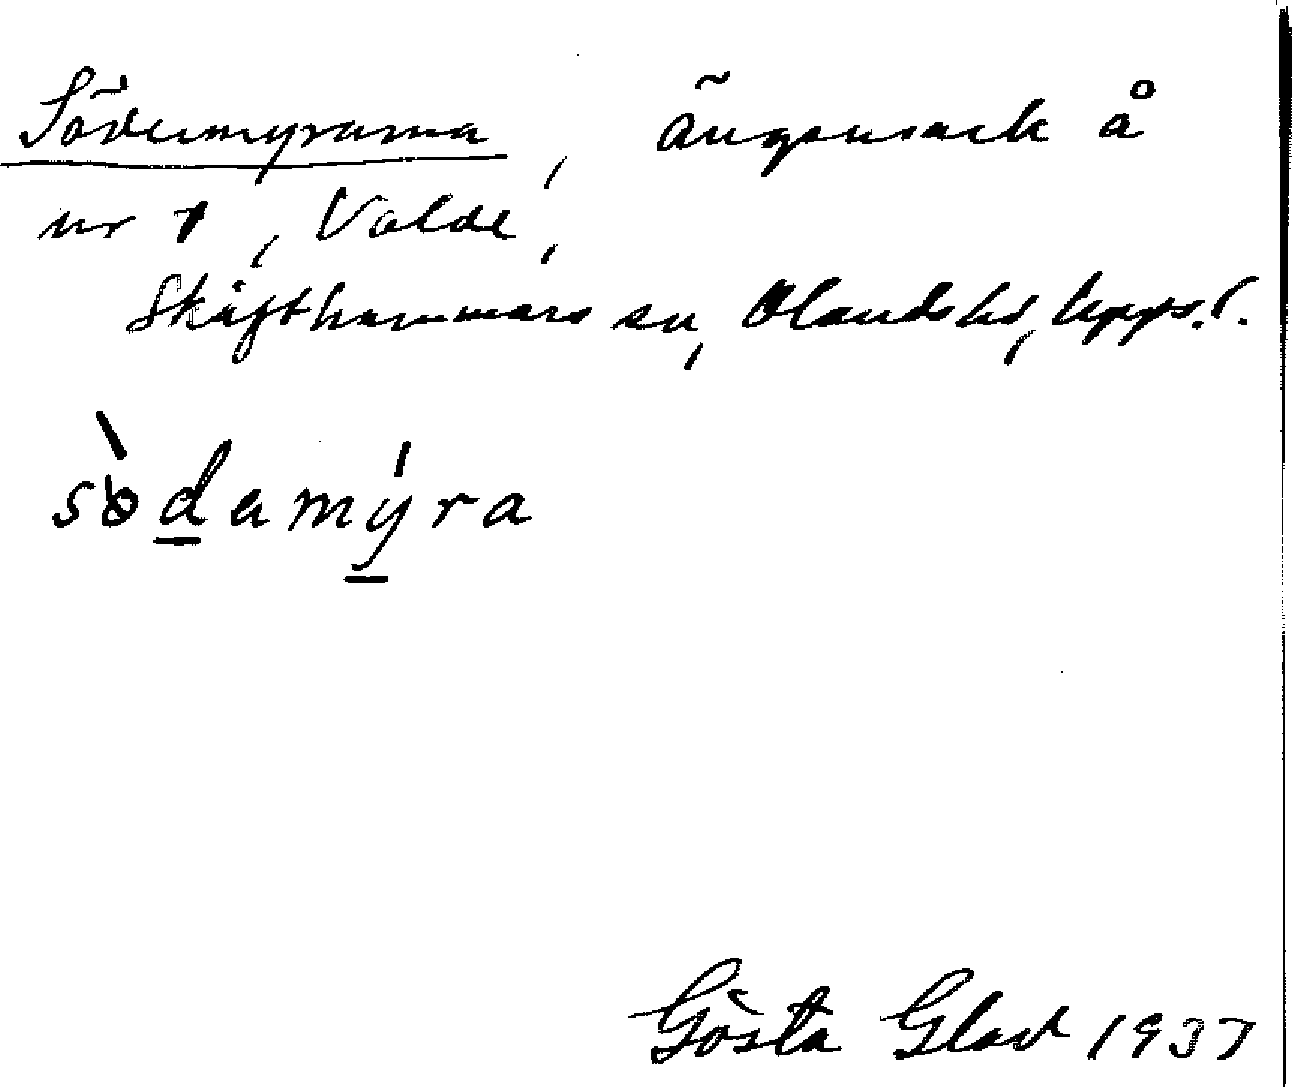 Södermyrarna, ängsmark å
nr 1, Valde,
Skäfthammars sn, Olands hd, Upps. l.
sòdamýra
Gösta Glad 1937